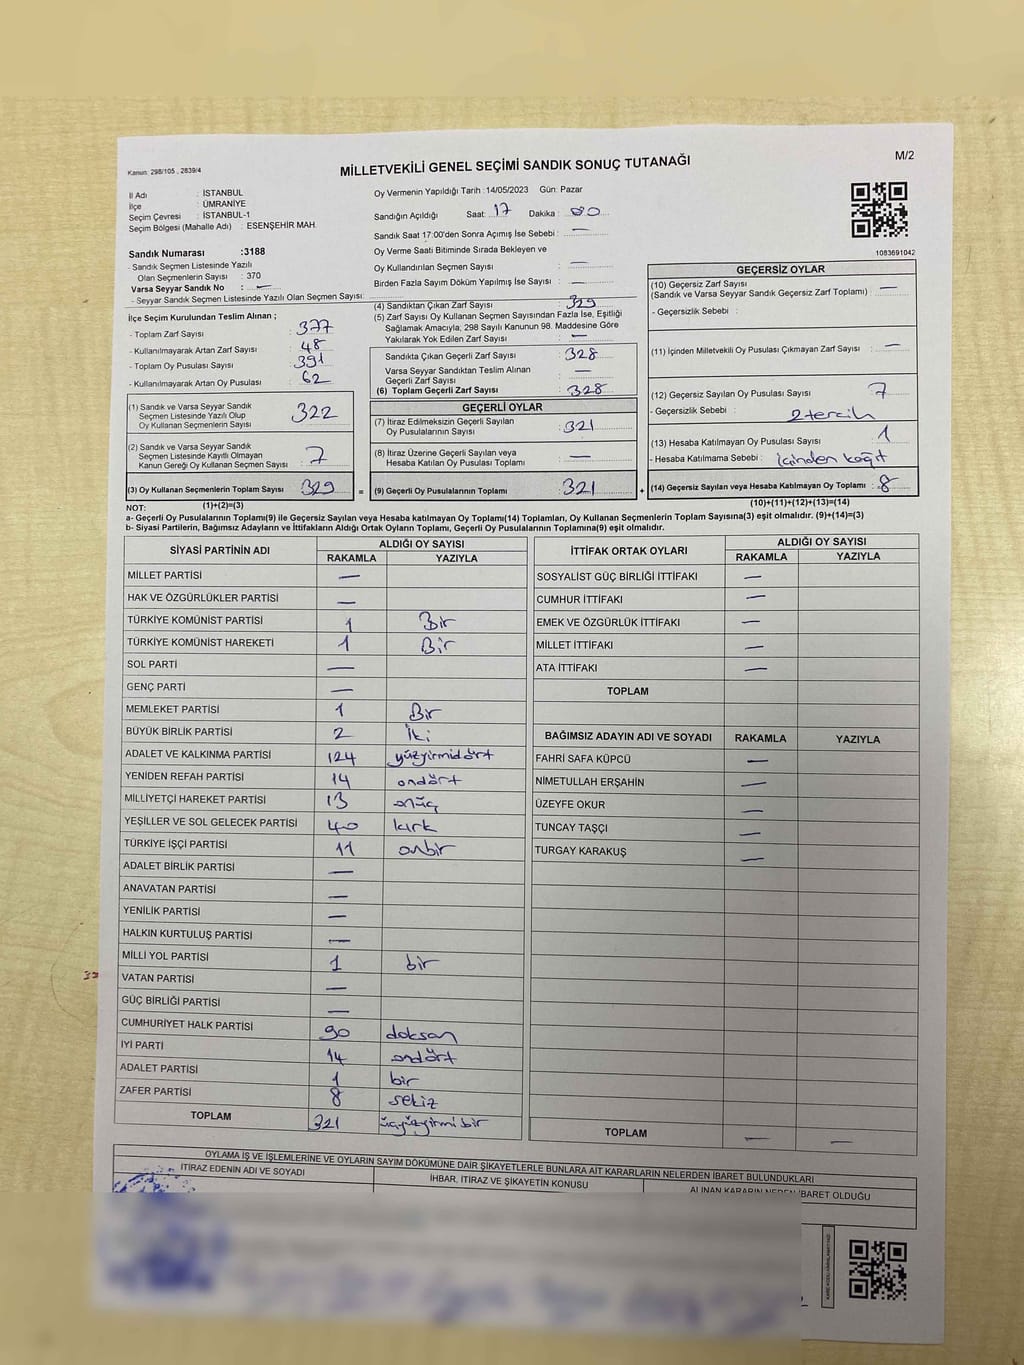 Kanun: 298/105 , 2839/4
MİLLETVEKİLİ GENEL SEÇİMİ SANDIK SONUÇ TUTANAĞI
M/2
İl Adı : İSTANBUL
İlçe : ÜMRANİYE
Seçim Çevresi : İSTANBUL-1
Seçim Bölgesi (Mahalle Adı) : ESENŞEHİR MAH.
Sandık Numarası :3188
- Sandık Seçmen Listesinde Yazılı
Olan Seçmenlerin Sayısı : 370
Varsa Seyyar Sandık No : —
- Seyyar Sandık Seçmen Listesinde Yazılı Olan Seçmen Sayısı:
Oy Vermenin Yapıldığı Tarih : 14/05/2023 Gün: Pazar
Sandığın Açıldığı Saat: 17 Dakika : 00
Sandık Saat 17:00'den Sonra Açımış İse Sebebi : —
Oy Verme Saati Bitiminde Sırada Bekleyen ve
Oy Kullandırılan Seçmen Sayısı : —
Birden Fazla Sayım Döküm Yapılmış İse Sayısı : —
1083691042
İlçe Seçim Kurulundan Teslim Alınan ;
- Toplam Zarf Sayısı : 377
- Kullanılmayarak Artan Zarf Sayısı : 48
- Toplam Oy Pusulası Sayısı : 391
- Kullanılmayarak Artan Oy Pusulası : 62
(1) Sandık ve Varsa Seyyar Sandık
Seçmen Listesinde Yazılı Olup
Oy Kullanan Seçmenlerin Sayısı : 322
(2) Sandık ve Varsa Seyyar Sandık
Seçmen Listesinde Kayıtlı Olmayan
Kanun Gereği Oy Kullanan Seçmen Sayısı : 7
(3) Oy Kullanan Seçmenlerin Toplam Sayısı : 329
(1)+(2)=(3)
(4) Sandıktan Çıkan Zarf Sayısı : 329
(5) Zarf Sayısı Oy Kullanan Seçmen Sayısından Fazla İse, Eşitliği
Sağlamak Amacıyla; 298 Sayılı Kanunun 98. Maddesine Göre
Yakılarak Yok Edilen Zarf Sayısı : —
Sandıkta Çıkan Geçerli Zarf Sayısı : 328
Varsa Seyyar Sandıktan Teslim Alınan
Geçerli Zarf Sayısı : —
(6) Toplam Geçerli Zarf Sayısı : 328
GEÇERLİ OYLAR
(7) İtiraz Edilmeksizin Geçerli Sayılan
Oy Pusulalarının Sayısı : 321
(8) İtiraz Üzerine Geçerli Sayılan veya
Hesaba Katılan Oy Pusulası Toplamı : —
= (9) Geçerli Oy Pusulalarının Toplamı : 321 +
GEÇERSİZ OYLAR
(10) Geçersiz Zarf Sayısı : —
(Sandık ve Varsa Seyyar Sandık Geçersiz Zarf Toplamı)
- Geçersizlik Sebebi :
(11) İçinden Milletvekili Oy Pusulası Çıkmayan Zarf Sayısı : —
(12) Geçersiz Sayılan Oy Pusulası Sayısı : 7
- Geçersizlik Sebebi : 2 tercih
(13) Hesaba Katılmayan Oy Pusulası Sayısı : 1
- Hesaba Katılmama Sebebi : İçinden kağıt
(14) Geçersiz Sayılan veya Hesaba Katılmayan Oy Toplamı : 8
(10)+(11)+(12)+(13)=(14)
NOT:
a- Geçerli Oy Pusulalarının Toplamı(9) ile Geçersiz Sayılan veya Hesaba katılmayan Oy Toplamı(14) Toplamları, Oy Kullanan Seçmenlerin Toplam Sayısına(3) eşit olmalıdır. (9)+(14)=(3)
b- Siyasi Partilerin, Bağımsız Adayların ve İttifakların Aldığı Ortak Oyların Toplamı, Geçerli Oy Pusulalarının Toplamına(9) eşit olmalıdır.
SİYASİ PARTİNİN ADI ALDIĞI OY SAYISI
RAKAMLA YAZIYLA
MİLLET PARTİSİ —
HAK VE ÖZGÜRLÜKLER PARTİSİ —
TÜRKİYE KOMÜNİST PARTİSİ 1 Bir
TÜRKİYE KOMÜNİST HAREKETİ 1 Bir
SOL PARTİ —
GENÇ PARTİ —
MEMLEKET PARTİSİ 1 Bir
BÜYÜK BİRLİK PARTİSİ 2 İki
ADALET VE KALKINMA PARTİSİ 124 yüzyirmidört
YENİDEN REFAH PARTİSİ 14 ondört
MİLLİYETÇİ HAREKET PARTİSİ 13 onüç
YEŞİLLER VE SOL GELECEK PARTİSİ 40 kırk
TÜRKİYE İŞÇİ PARTİSİ 11 onbir
ADALET BİRLİK PARTİSİ —
ANAVATAN PARTİSİ —
YENİLİK PARTİSİ —
HALKIN KURTULUŞ PARTİSİ —
MİLLİ YOL PARTİSİ 1 bir
VATAN PARTİSİ —
GÜÇ BİRLİĞİ PARTİSİ —
CUMHURİYET HALK PARTİSİ 90 doksan
İYİ PARTİ 14 ondört
ADALET PARTİSİ 1 bir
ZAFER PARTİSİ 8 sekiz
TOPLAM 321 üçyüzyirmi bir
İTTİFAK ORTAK OYLARI ALDIĞI OY SAYISI
RAKAMLA YAZIYLA
SOSYALİST GÜÇ BİRLİĞİ İTTİFAKI —
CUMHUR İTTİFAKI —
EMEK VE ÖZGÜRLÜK İTTİFAKI —
MİLLET İTTİFAKI —
ATA İTTİFAKI —
TOPLAM
BAĞIMSIZ ADAYIN ADI VE SOYADI RAKAMLA YAZIYLA
FAHRİ SAFA KÜPCÜ —
NİMETULLAH ERŞAHİN —
ÜZEYFE OKUR —
TUNCAY TAŞÇI —
TURGAY KARAKUŞ —
TOPLAM — —
OYLAMA İŞ VE İŞLEMLERİNE VE OYLARIN SAYIM DÖKÜMÜNE DAİR ŞİKAYETLERLE BUNLARA AİT KARARLARIN NELERDEN İBARET BULUNDUKLARI
İTİRAZ EDENİN ADI VE SOYADI İHBAR, İTİRAZ VE ŞİKAYETİN KONUSU ALINAN KARARIN NEDEN İBARET OLDUĞU